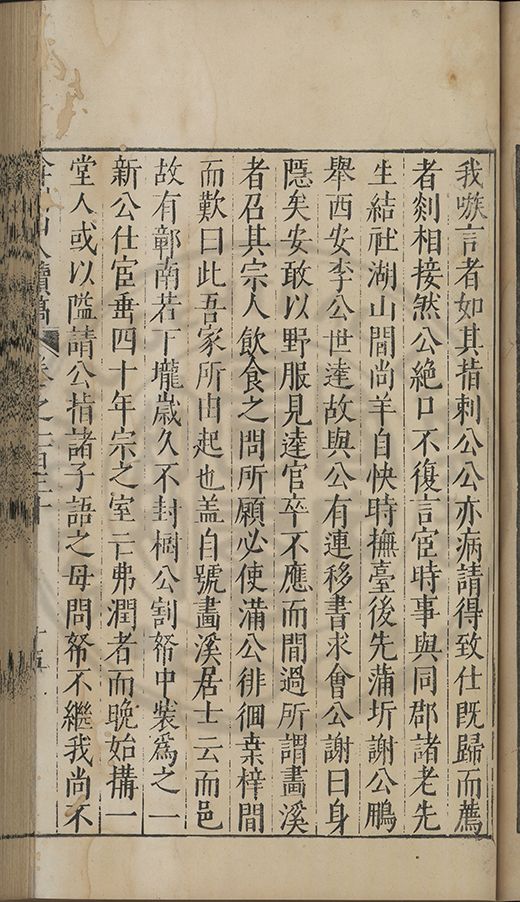 我嗾言者如其指刺公公亦病請得致仕既歸而薦
者剡相接然公絕口不復言宦時事與同郡諸老先
生結社湖山間尚羊自快時撫臺後先蒲圻謝公鵬
舉西安李公世達故與公有連移書求會公謝曰身
隱矣安敢以野服見達官卒不應而間過所謂畫溪
者召其宗人飲食之問所願必使滿公徘徊桒梓間
而歎曰此吾家所由起也盖自號畫溪居士云而邑
故有鄣南若下壠歲久不封樹公割帑中裝爲之一
新公仕宦垂四十年宗之室亡弗潤者而晚始搆一
堂人或以隘請公指諸子語之毋問帑不繼我尚不
弇州山人續稿 卷之一百三十 十五